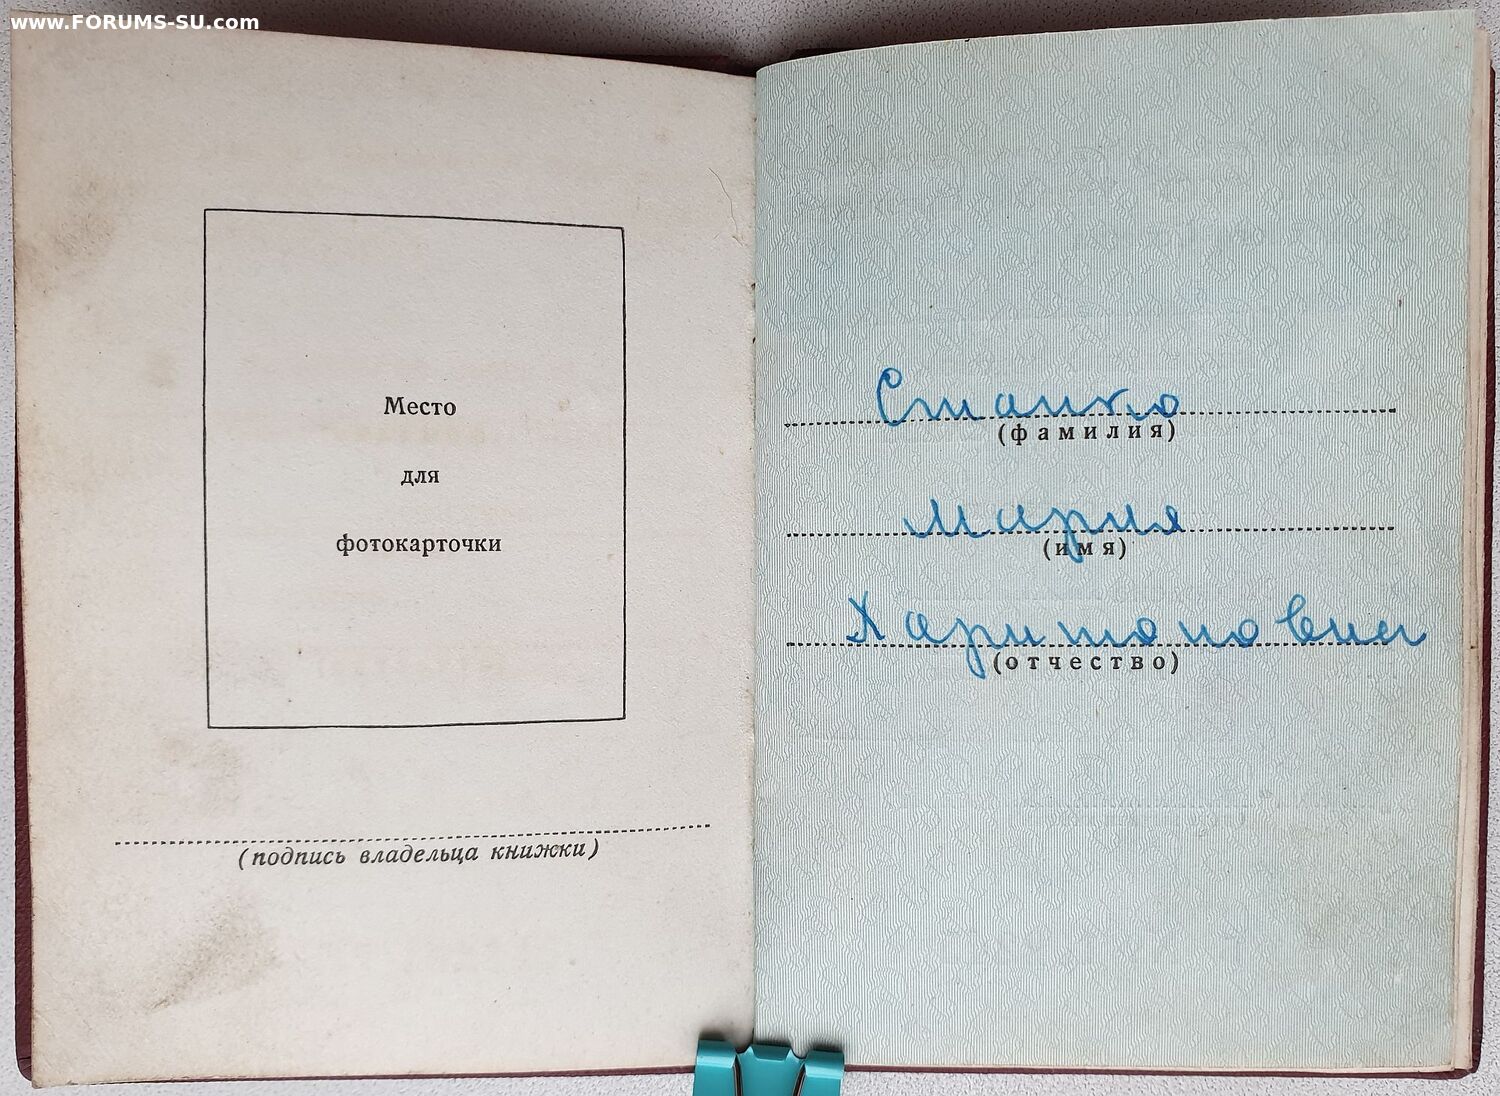 www.FORUMS-SU.com
Место
для
фотокарточки
(подпись владельца книжки)
Станко
(фамилия)
Мария
(имя)
Харитоновна
(отчество)